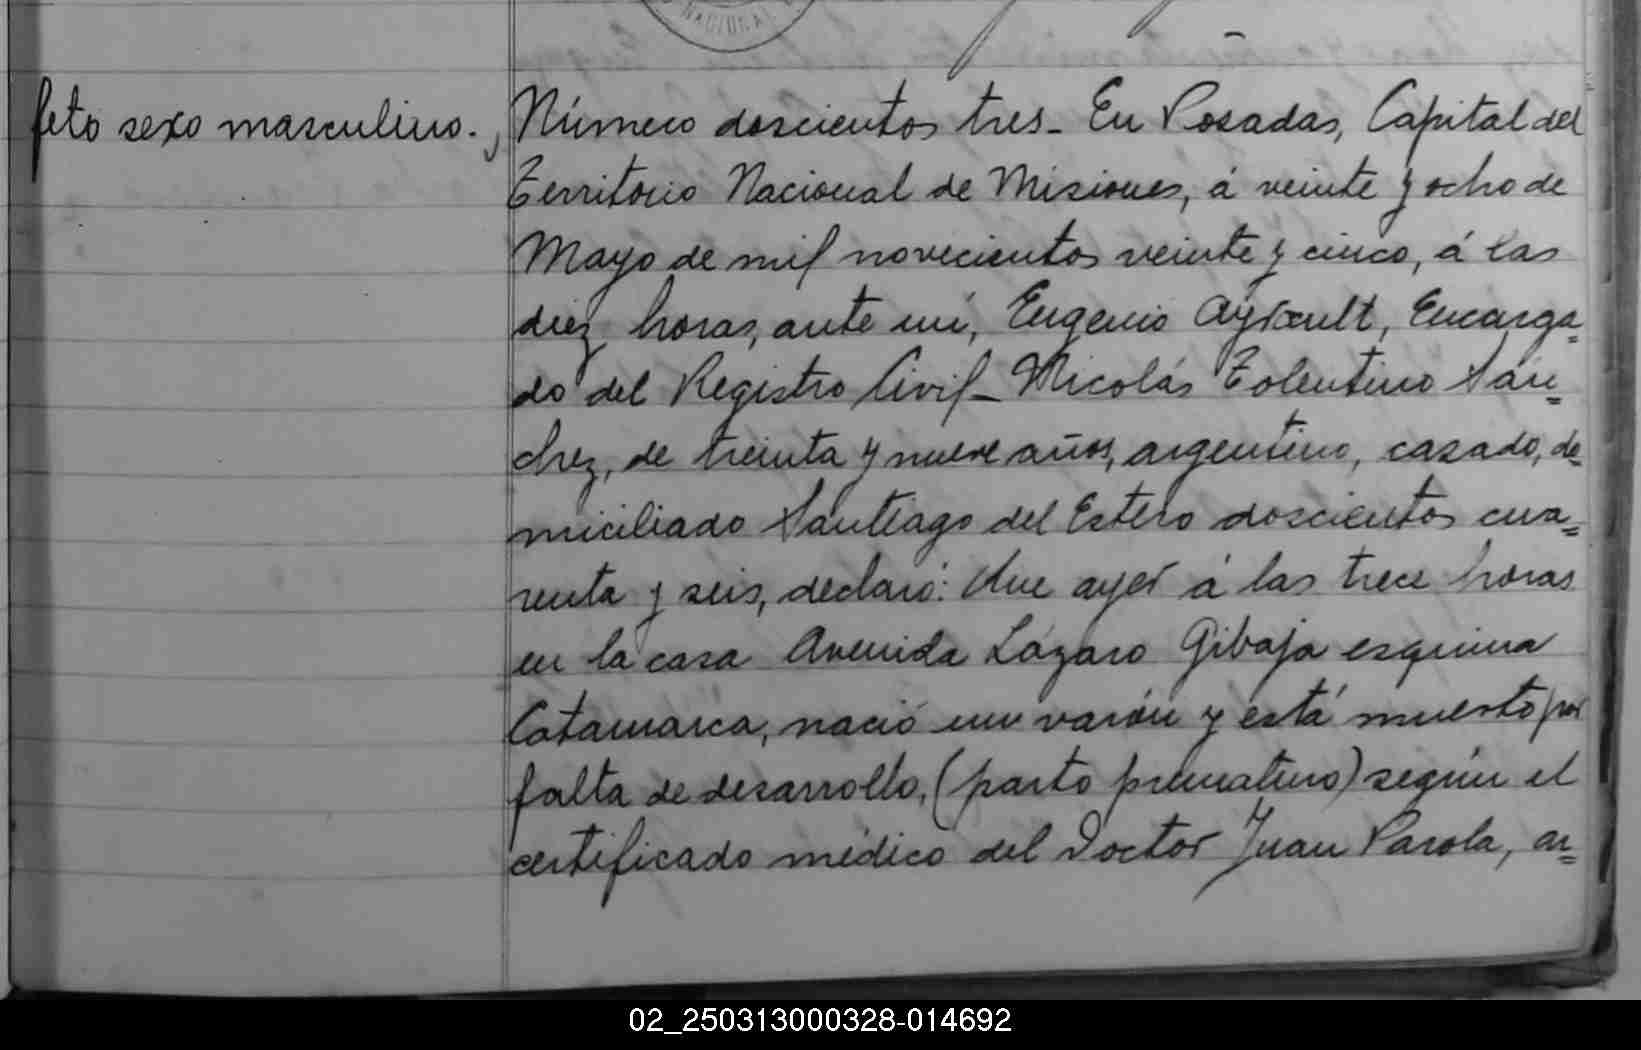 NACIONAL
feto sexo masculino.
Número doscientos tres - En Posadas, Capital del
Territorio Nacional de Misiones, á veinte y ocho de
Mayo de mil novecientos veinte y cinco, á las
diez horas, ante mí, Eugenio Ayrault, Encarga=
do del Registro Civil - Nicolás Tolentino Sán=
chez, de treinta y nueve años, argentino, casado, do=
miciliado Santiago del Estero doscientos cua=
renta y seis, declaró: Que ayer á las trece horas
en la casa Avenida Lázaro Gibaja esquina
Catamarca, nació un varón y está muerto por
falta de desarrollo, (parto prematuro) según el
certificado médico del Doctor Juan Parola, ar=
02_250313000328-014692